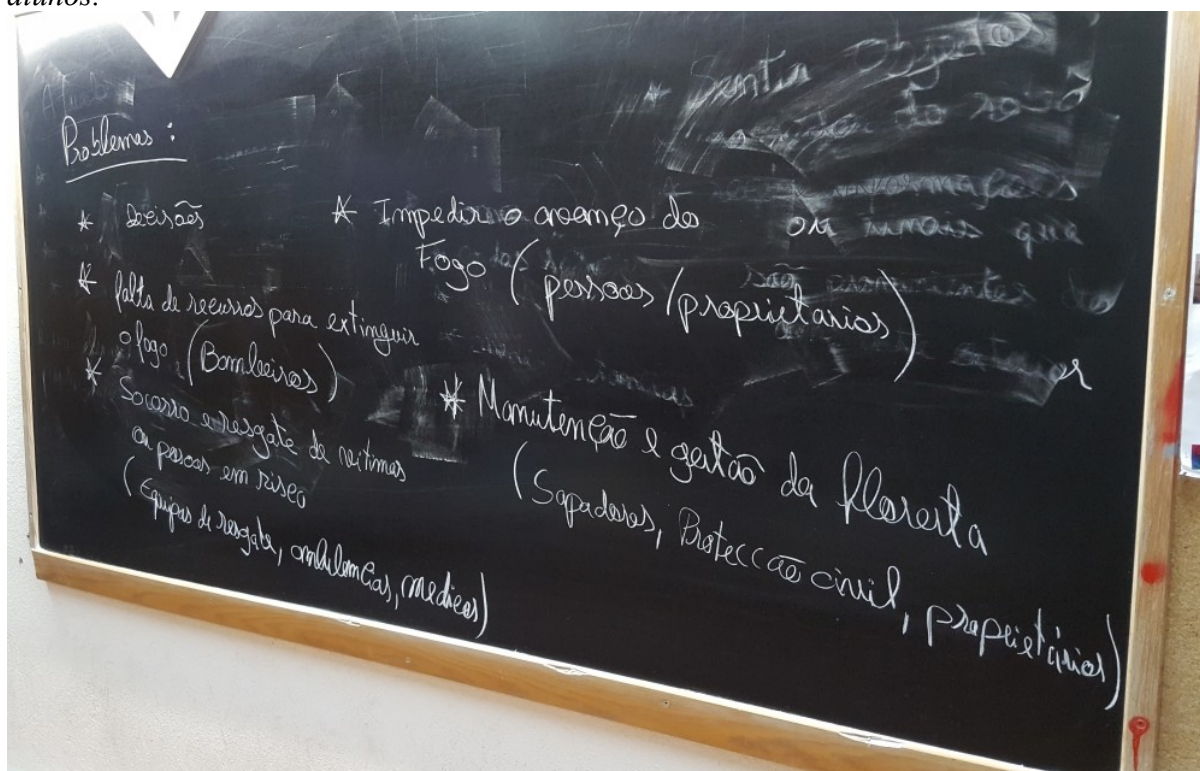 alunos.
Problemas :
* Decisões
* falta de recursos para extinguir
o fogo (Bombeiros)
* Socorro e resgate de vitimas
ou pessoas em risco
(Equipas de resgate, ambulancias, medicos)
* Impedir o avanço do
Fogo (pessoas/proprietarios)
* Manutenção e gestão da floresta
(Sapadores, Protecção civil, proprietários)
* Sentir
ou mais que
são